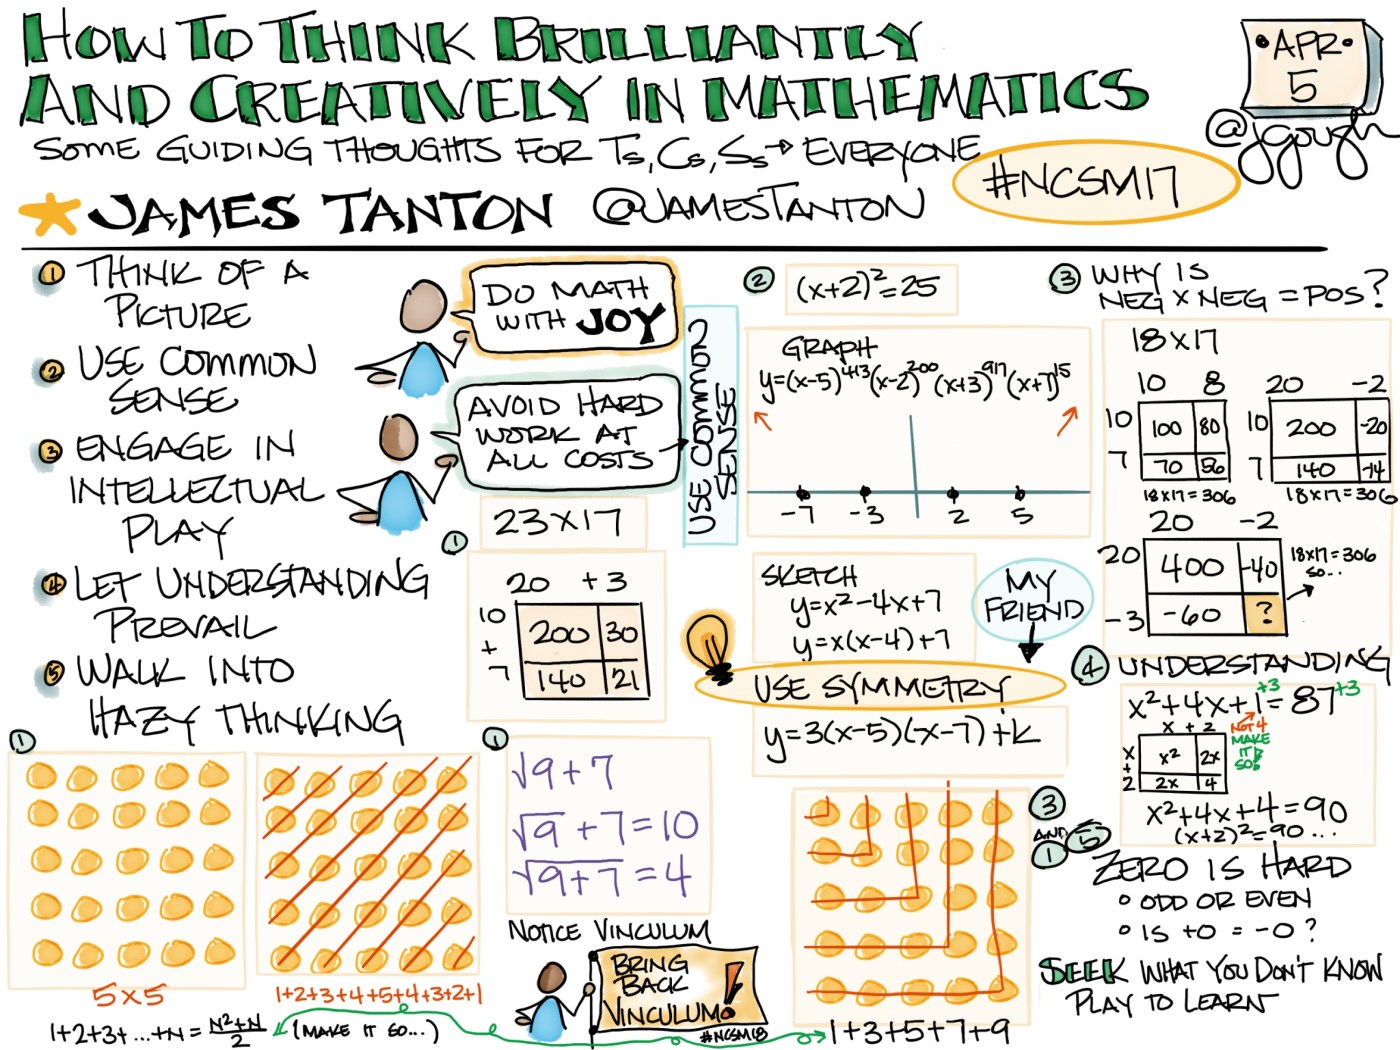 HOW TO THINK BRILLIANTLY
AND CREATIVELY IN MATHEMATICS
SOME GUIDING THOUGHTS FOR Ts, Cs, Ss → EVERYONE
JAMES TANTON @JAMESTANTON
#NCSM17
APR
5
@jgough
1 THINK OF A
PICTURE
2 USE COMMON
SENSE
3 ENGAGE IN
INTELLECTUAL
PLAY
4 LET UNDERSTANDING
PREVAIL
5 WALK INTO
HAZY THINKING
DO MATH
WITH JOY
AVOID HARD
WORK AT
ALL COSTS
USE COMMON
SENSE
1
23×17
20 +3
10 200 30
+
7 140 21
2 (x+2)²=25
GRAPH
y=(x-5)^413(x-2)^200(x+3)^917(x+7)^15
-7 -3 2 5
SKETCH
y=x²-4x+7
y=x(x-4)+7
MY
FRIEND
USE SYMMETRY
y=3(x-5)(x-7)+k
3 WHY IS
NEG × NEG = POS?
18×17
10 8
10 100 80
7 70 56
18×17=306
20 -2
10 200 -20
7 140 -14
18×17=306
20 -2
20 400 -40
-3 -60 ?
18×17=306
SO...
4 UNDERSTANDING
x²+4x+1=87
+3 +3
NOT 4
MAKE
IT
SO!
x + 2
x x² 2x
+
2 2x 4
x²+4x+4=90
(x+2)²=90...
1
5×5
1+2+3+4+5+4+3+2+1
1+2+3+...+N=N²+N/2 (MAKE IT SO...)
1
√9+7
√9+7=10
√9+7=4
NOTICE VINCULUM
BRING
BACK
VINCULUM!
#NCSM18
3
AND
1 5
1+3+5+7+9
ZERO IS HARD
• ODD OR EVEN
• IS +0 = -0?
SEEK WHAT YOU DON'T KNOW
PLAY TO LEARN